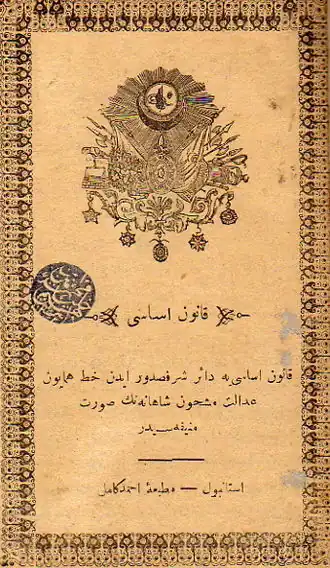 قانون اساسی
قانون اساسی یه دائر شرفصدور ایدن خط همایون
عدالت مشحون شاهانه نك صورت
منیفه سیدر
استانبول — مطبعۀ احمد کامل